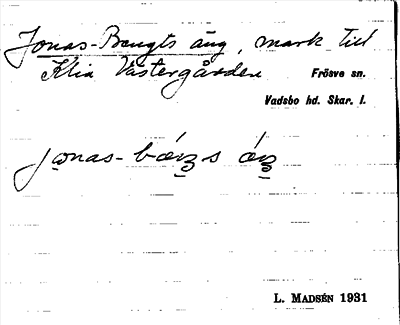 Jonas-Bengts äng, mark till
Klia Västergården Frösve sn.
Vadsbo hd. Skar. l.
jonas-
L. MADSÉN 1931